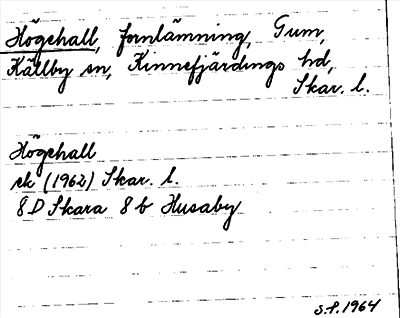 Högehall, fornlämning, Gum,
Källby sn, Kinnefjärdings hd,
Skar. l.
Högehall
ek (1962) Skar. l.
8D Skara 8 b Husaby
S.F. 1964